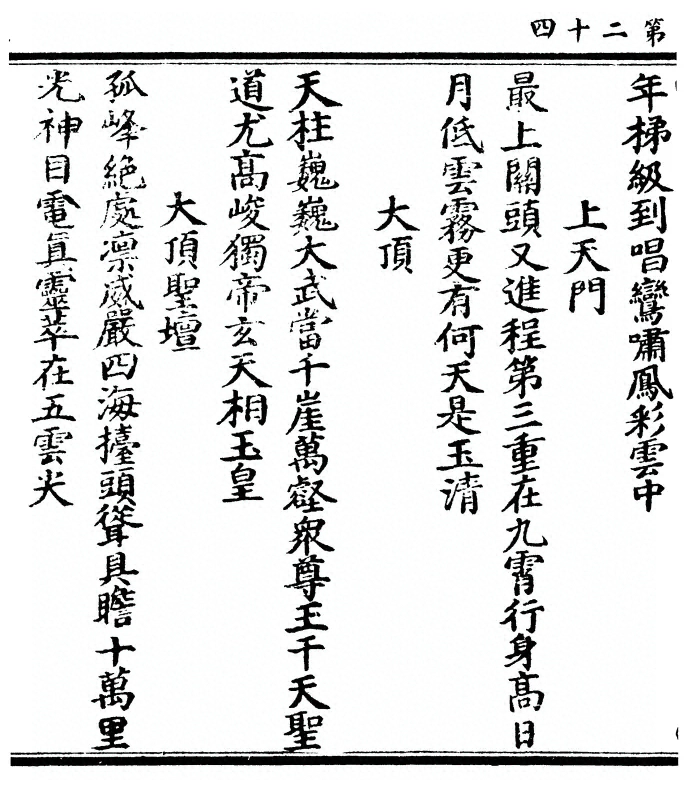 第二十四
年梯級到唱鸞嘯鳳彩雲中
上天門
最上關頭又進程第三重在九霄行身高日
月低雲霧更有何天是玉清
大頂
天柱巍巍大武當千崖萬壑衆尊王千天聖
道尤高峻獨帝玄天相玉皇
大頂聖壇
孤峰絶處凛威嚴四海擡頭聳具瞻十萬里
光神目電眞靈萃在五雲尖